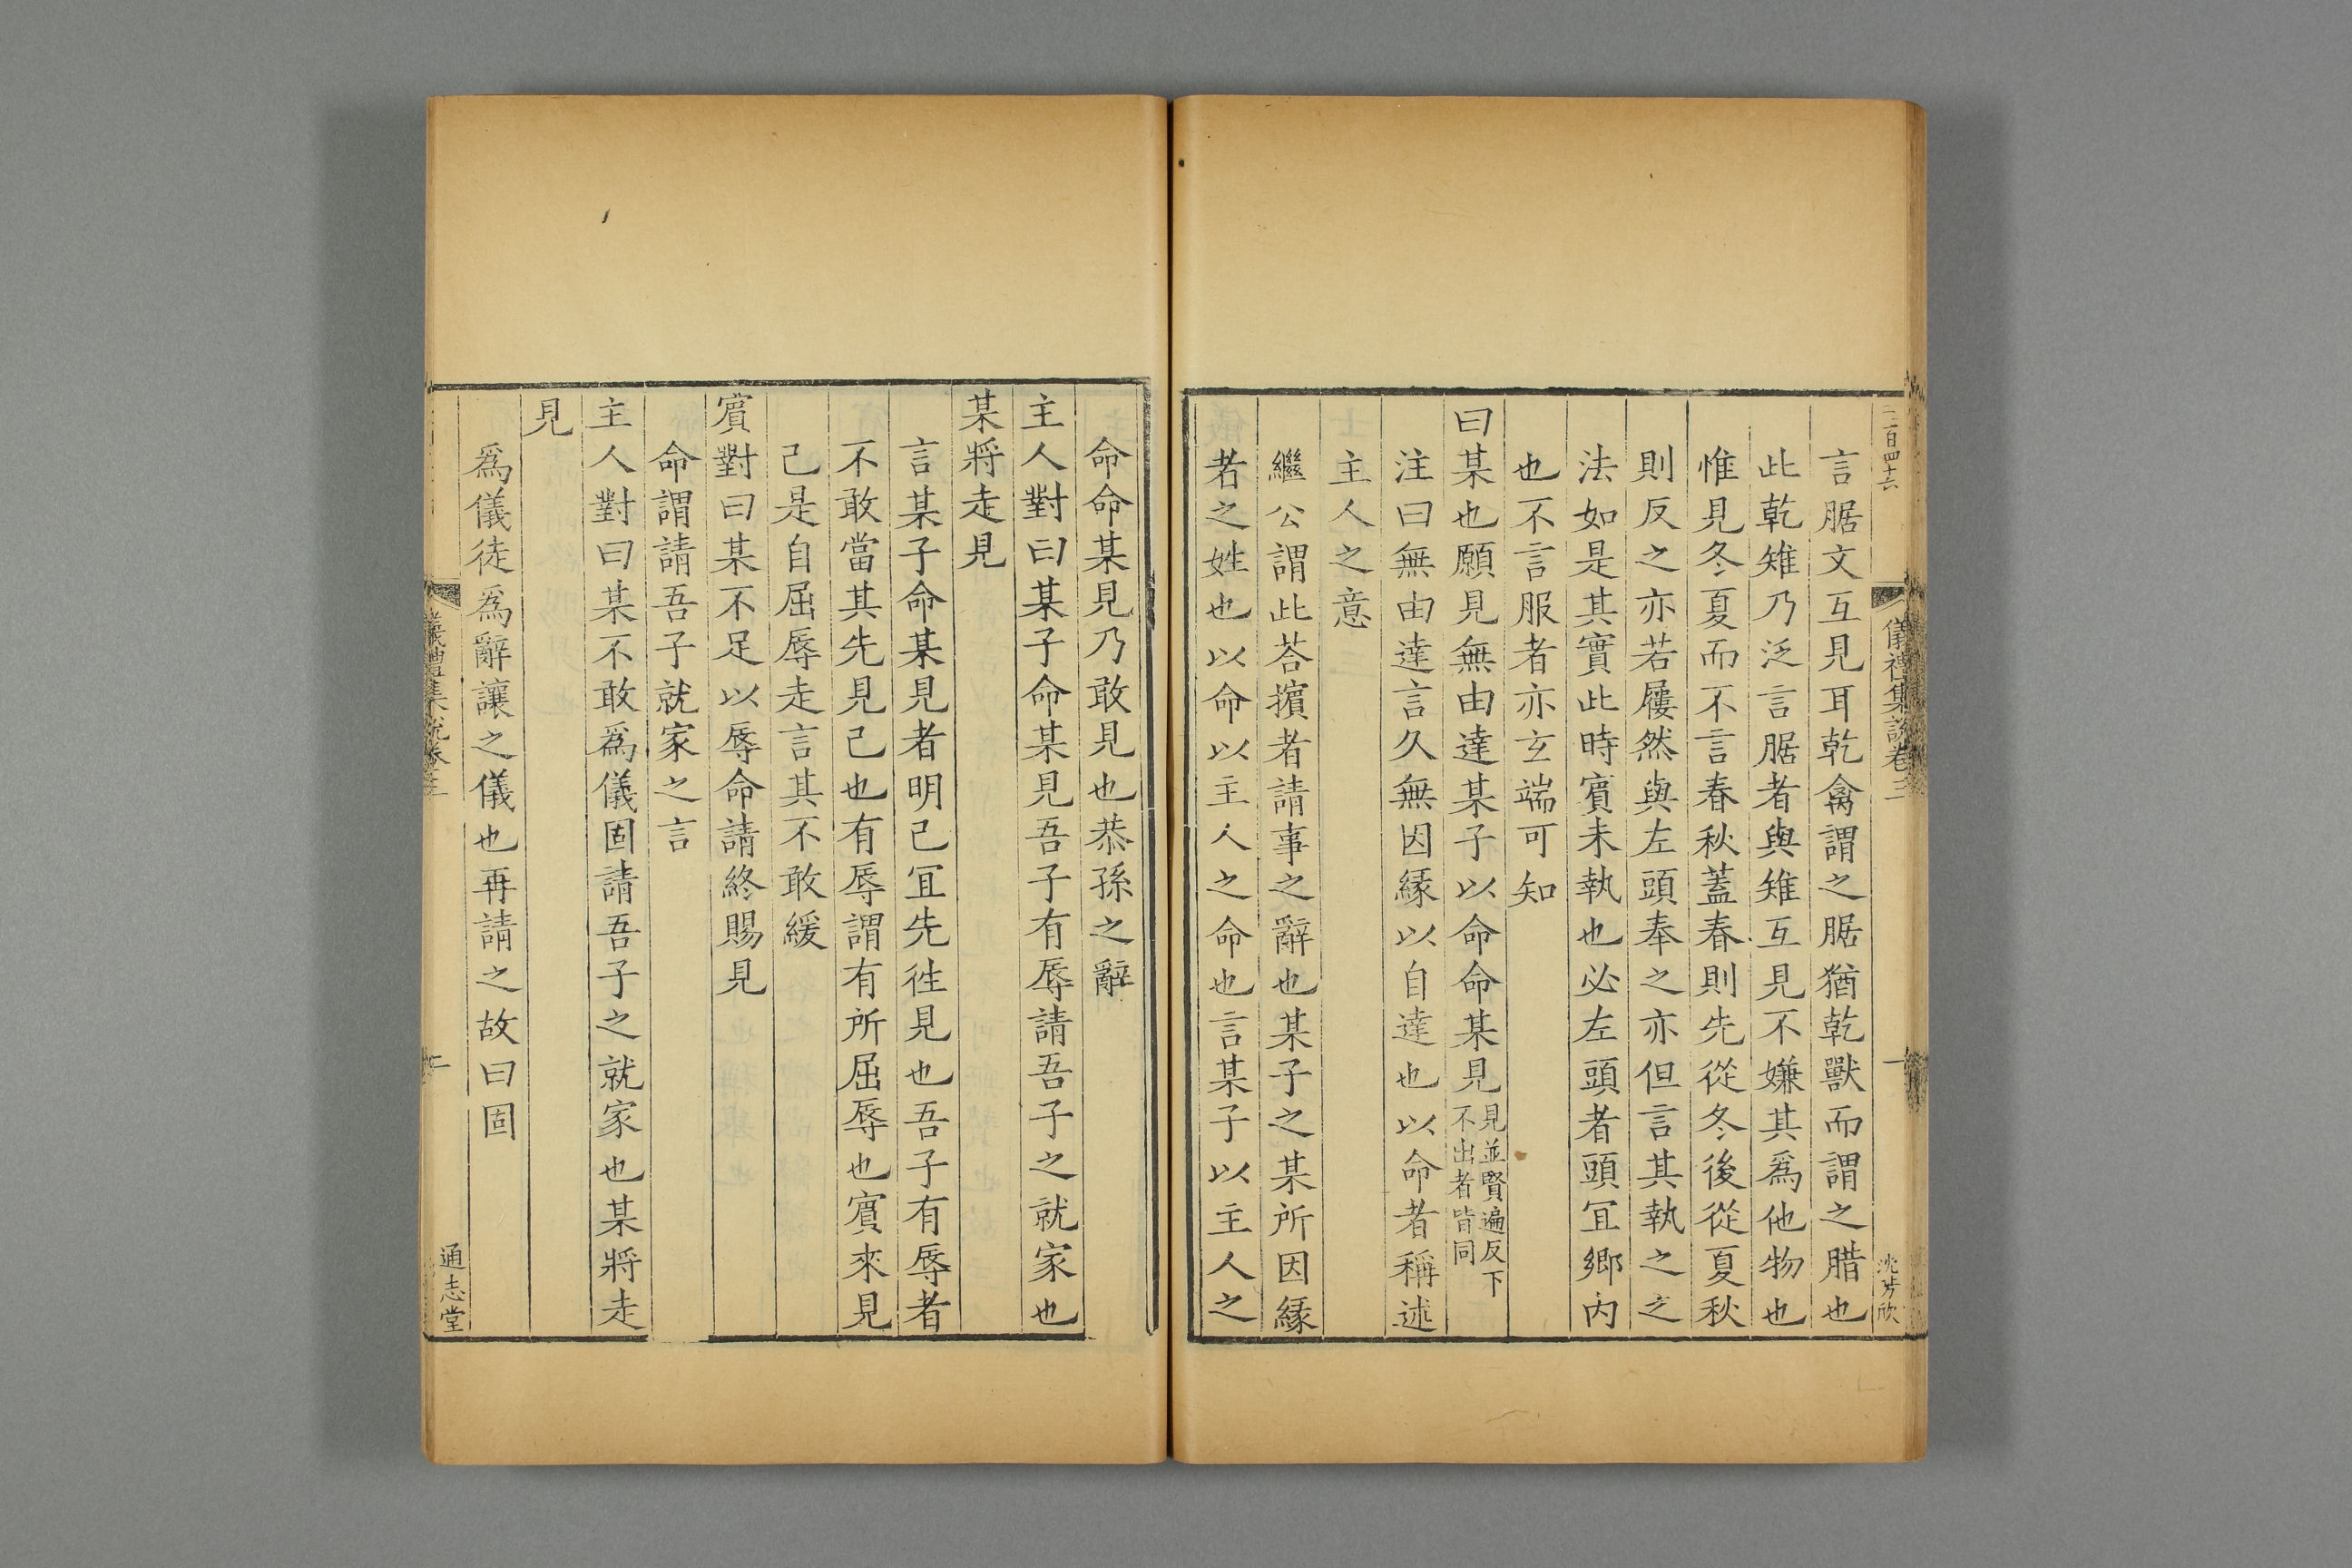 二百四十六
儀禮集說卷三
一
言腒文互見耳乾禽謂之腒猶乾獸而謂之腊也
此乾雉乃泛言腒者與雉互見不嫌其爲他物也
惟見冬夏而不言春秋蓋春則先從冬後從夏秋
則反之亦若屨然與左頭奉之亦但言其執之之
法如是其實此時賔未執也必左頭者頭冝鄉內
也不言服者亦玄端可知
曰某也願見無由達某子以命命某見見並賢遍反下不出者皆同
注曰無由達言久無因緣以自達也以命者稱述
主人之意
繼公謂此荅擯者請事之辭也某子之某所因緣
者之姓也以命以主人之命也言某子以主人之
命命某見乃敢見也恭孫之辭
主人對曰某子命某見吾子有辱請吾子之就家也
某將走見
言某子命某見者明己冝先徃見也吾子有辱者
不敢當其先見己也有辱謂有所屈辱也賔來見
己是自屈辱走言其不敢緩
賔對曰某不足以辱命請終賜見
命謂請吾子就家之言
主人對曰某不敢爲儀固請吾子之就家也某將走
見
爲儀徒爲辭讓之儀也再請之故曰固
儀禮集說卷三
通志堂